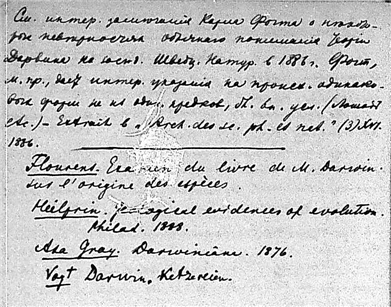 См. интер. замечания Карла Фогта о
обычного понимания
Дарвина на Швейц. Натур. в 1886 г. Фогт,
м. пр., дает интер. указания на происх. одинако-
вых форм не из один. предков,
– Extrait в „Arch. des sc. ph. et nat." (3) XVI.
1886.
Flourens. Examen du livre de M. Darwin
sur l'origine des espèces.
Heilprin. Geological evidences of evolution.
Philad. 1888.
Asa Gray. Darwiniana. 1876.
Vogt Darwin. Ketzereien.